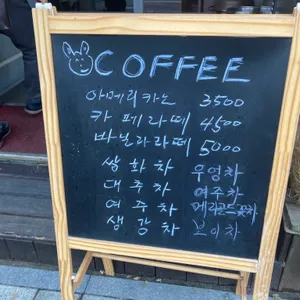 COFFEE
아메리카노 3500
카페라떼 4500
바닐라라떼 5000
쌍화차 우엉차
대추차 여주차
여주차 메리골드꽃차
생강차 보이차